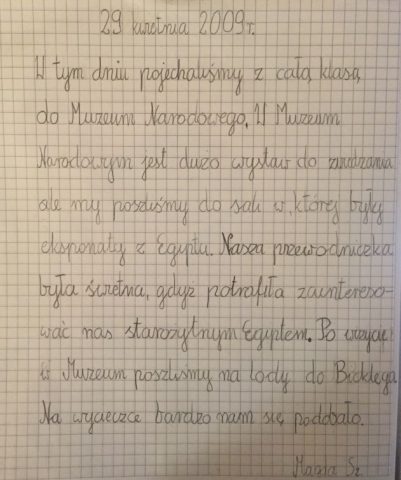 29 kwietnia 2009r.
W tym dniu pojechaliśmy z całą klasą
do Muzeum Narodowego. W Muzeum
Narodowym jest dużo wystaw do zwidzania
ale my poszliśmy do sali w, której były
eksponaty z Egiptu. Nasza przewodniczka
była świetna, gdyż potrafiła zaintereso-
wać nas starożytnym Egiptem. Po wizycie
w Muzeum poszliśmy na lody do Bicklega
Na wycieczce bardzo nam się poddbało.
Sz.